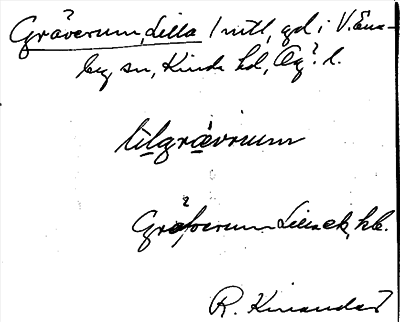 Gräverum, Lilla 1 mtl, gd i V. Ene-
by sn, Kinda hd, Ög. l.
lilgrävrum
Gräfverum Lilla ek, hk.
R. Kinander